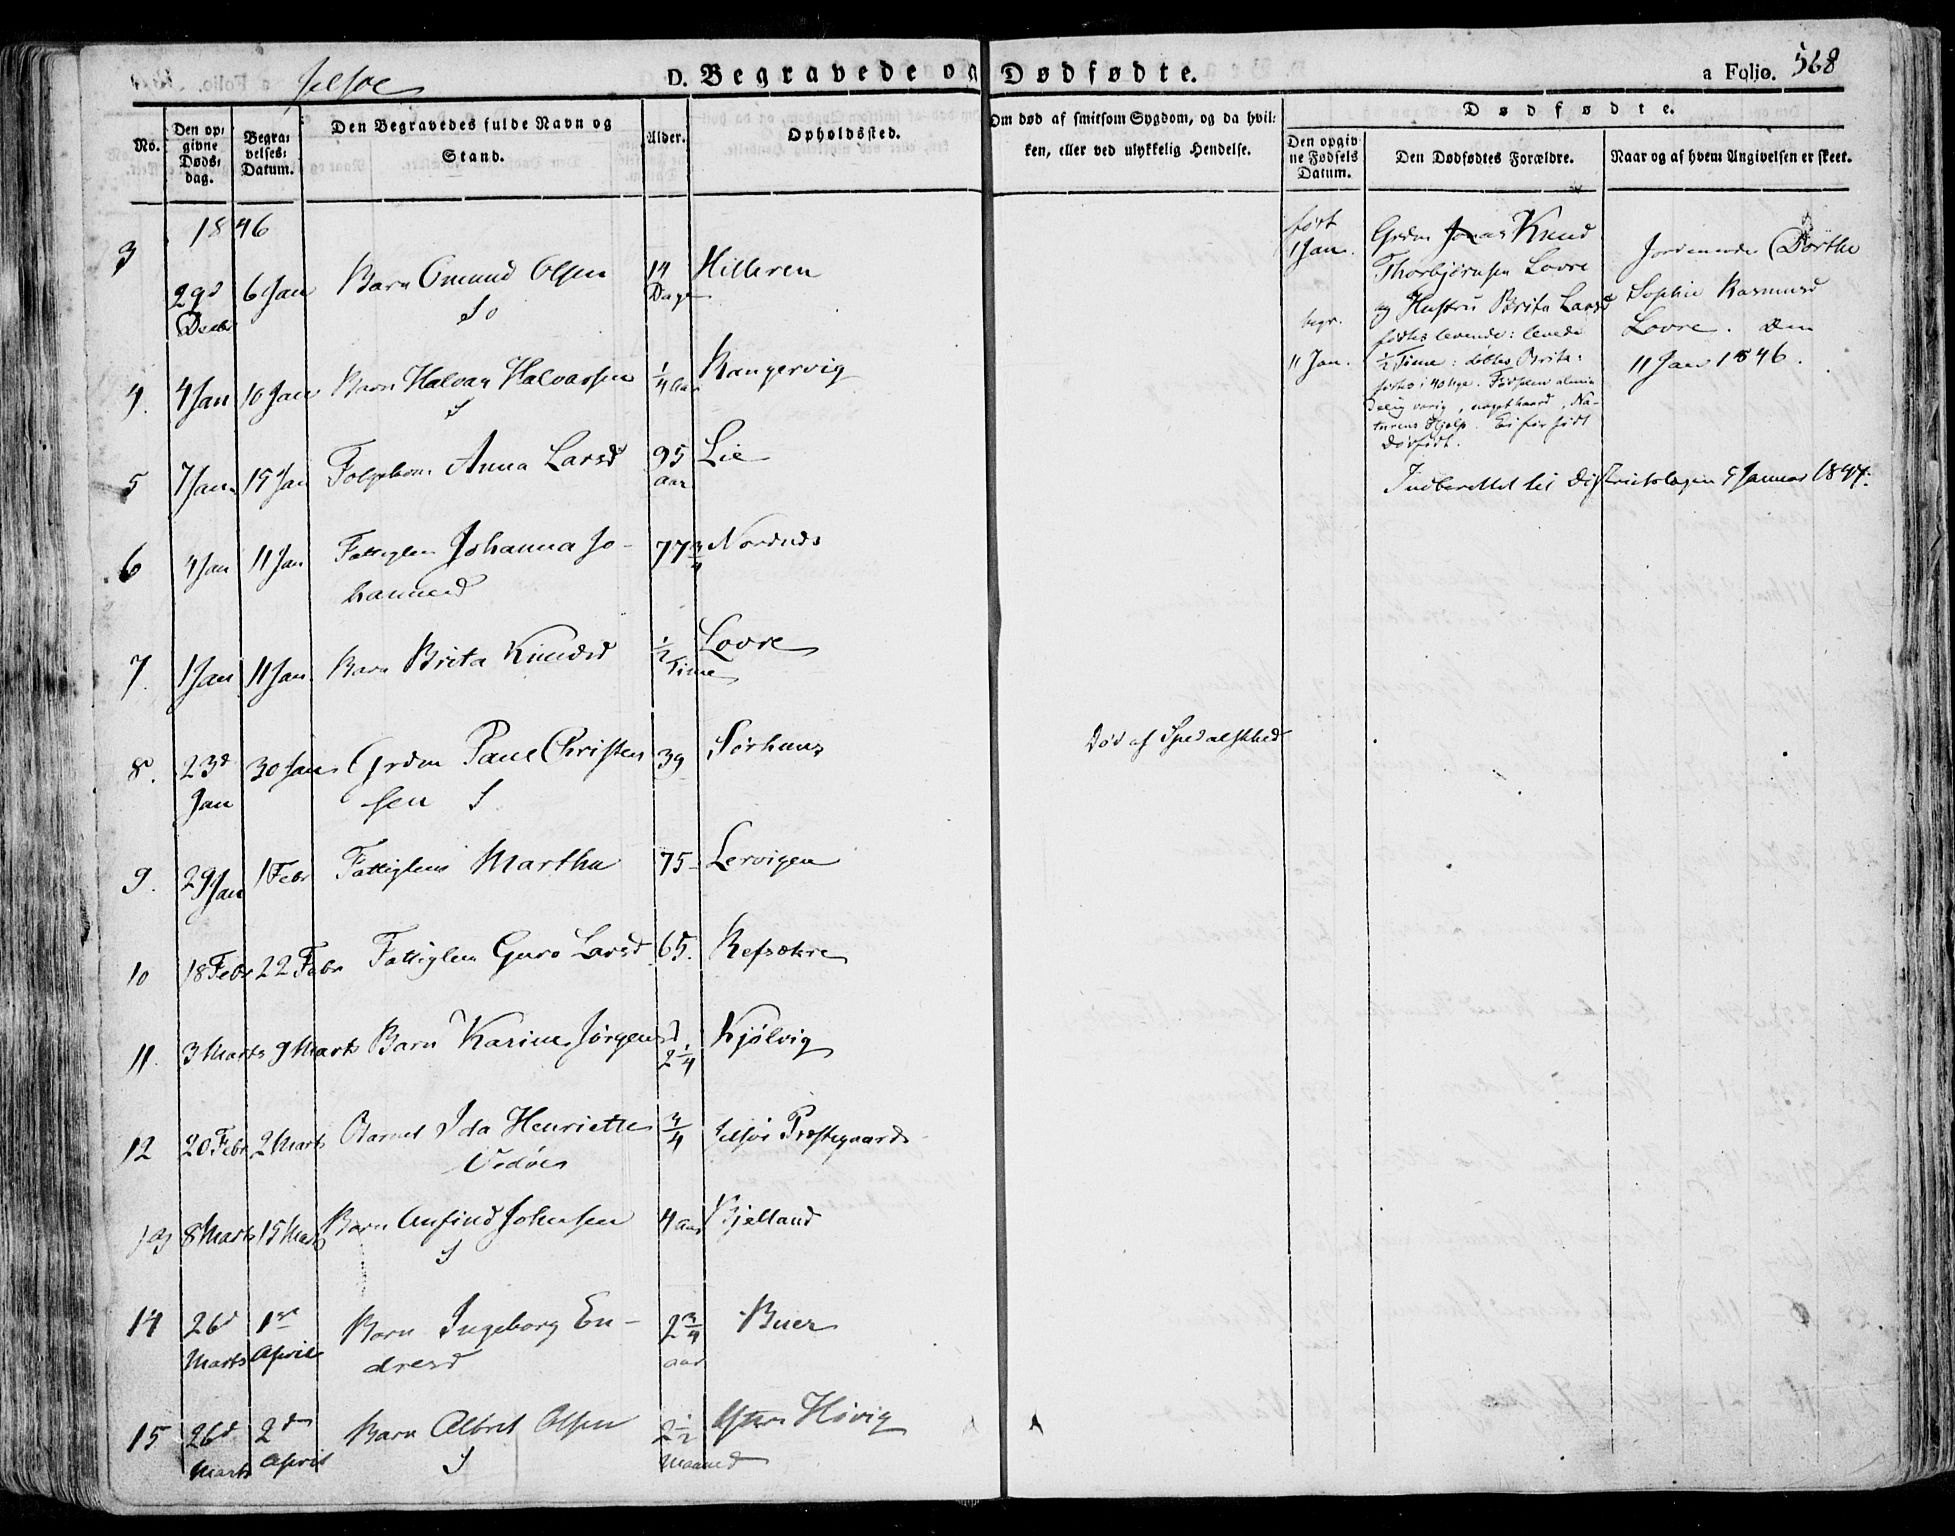 Jelsøe
D. Begravede og Dødfødte.
a Folio. 568
No.
Den opgivne Døds-dag.
Begravelses-Datum.
Den Begravedes fulde Navn og Stand.
Alder.
Opholdssted.
Om død af smitsom Sygdom, og da hvilken, eller ved ulykkelig Hendelse.
Dødfødte.
Den opgivne Fødsels Datum.
Den Dødfødtes Forældre.
Naar og af hvem Angivelsen er skeet.
1846
3 29d Decbr 6 Jan Barn Omund Olsen 14 Dage Hilleren
4. 4 Jan 10 Jan Barn Halvar Halvarsen 1/4 Aar Rangervig
5 7 Jan 15 Jan Anna Larsd 95 aar Lie
6 4 Jan 11 Jan Fattiglem Johanna Johannesd 77 3/4 Nordnæs
7. 1 Jan 11 Jan Barn Brita Knudsd 1/2 Time Lovre
8. 23d Jan 30 Jan Grdm Paul Christensen 39 Sørhuus Død af Spedalskhed
9. 29 Jan 1 Febr Fattiglem Martha 75 Lervigen
10 18 Febr 22 Febr Fattiglem Guro Larsd 65. Refsækre
11. 3 Marts 9 Marts Barn Karine Jørgensd 2 1/4 Kjølvig
12 20 Febr 2 Marts Barnet Ida Henriette Vedøes 3/4 Jelsøe Præstegaard
13 8 Marts 15 Marts Barn Anfind Johnsen 4 aar Bjelland
14 26d Marts 1ste April Barn Ingeborg Endresd 2 3/4 aar Buer
15 26d Marts 2den April Barn Albret Olsen 2 1/2 Maaned Høvig
født
1 Jan.
begr.
11 Jan.
Grdm Knud
Thorbjørnsen Lovre
og Hustru Brita Larsd
fødtes levende: levede
1/2 Time: døbtes Brita:
noget haard, Na-
turens Hjelp. Ei før født
Dødfødt.
Jordemode Dorthe
Sophie Rasmusd
Lovre. Den
11 Jan 1846.
Indberettet til Districtslægen Januar 1847.